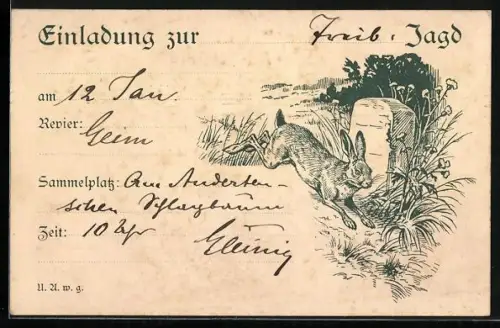 Einladung zur Treib-Jagd
am 12 Jan.
Revier:
Sammelplatz: Am Anderten-
schen Schlagbaum
Zeit: 10 Uhr
U. A. w. g.